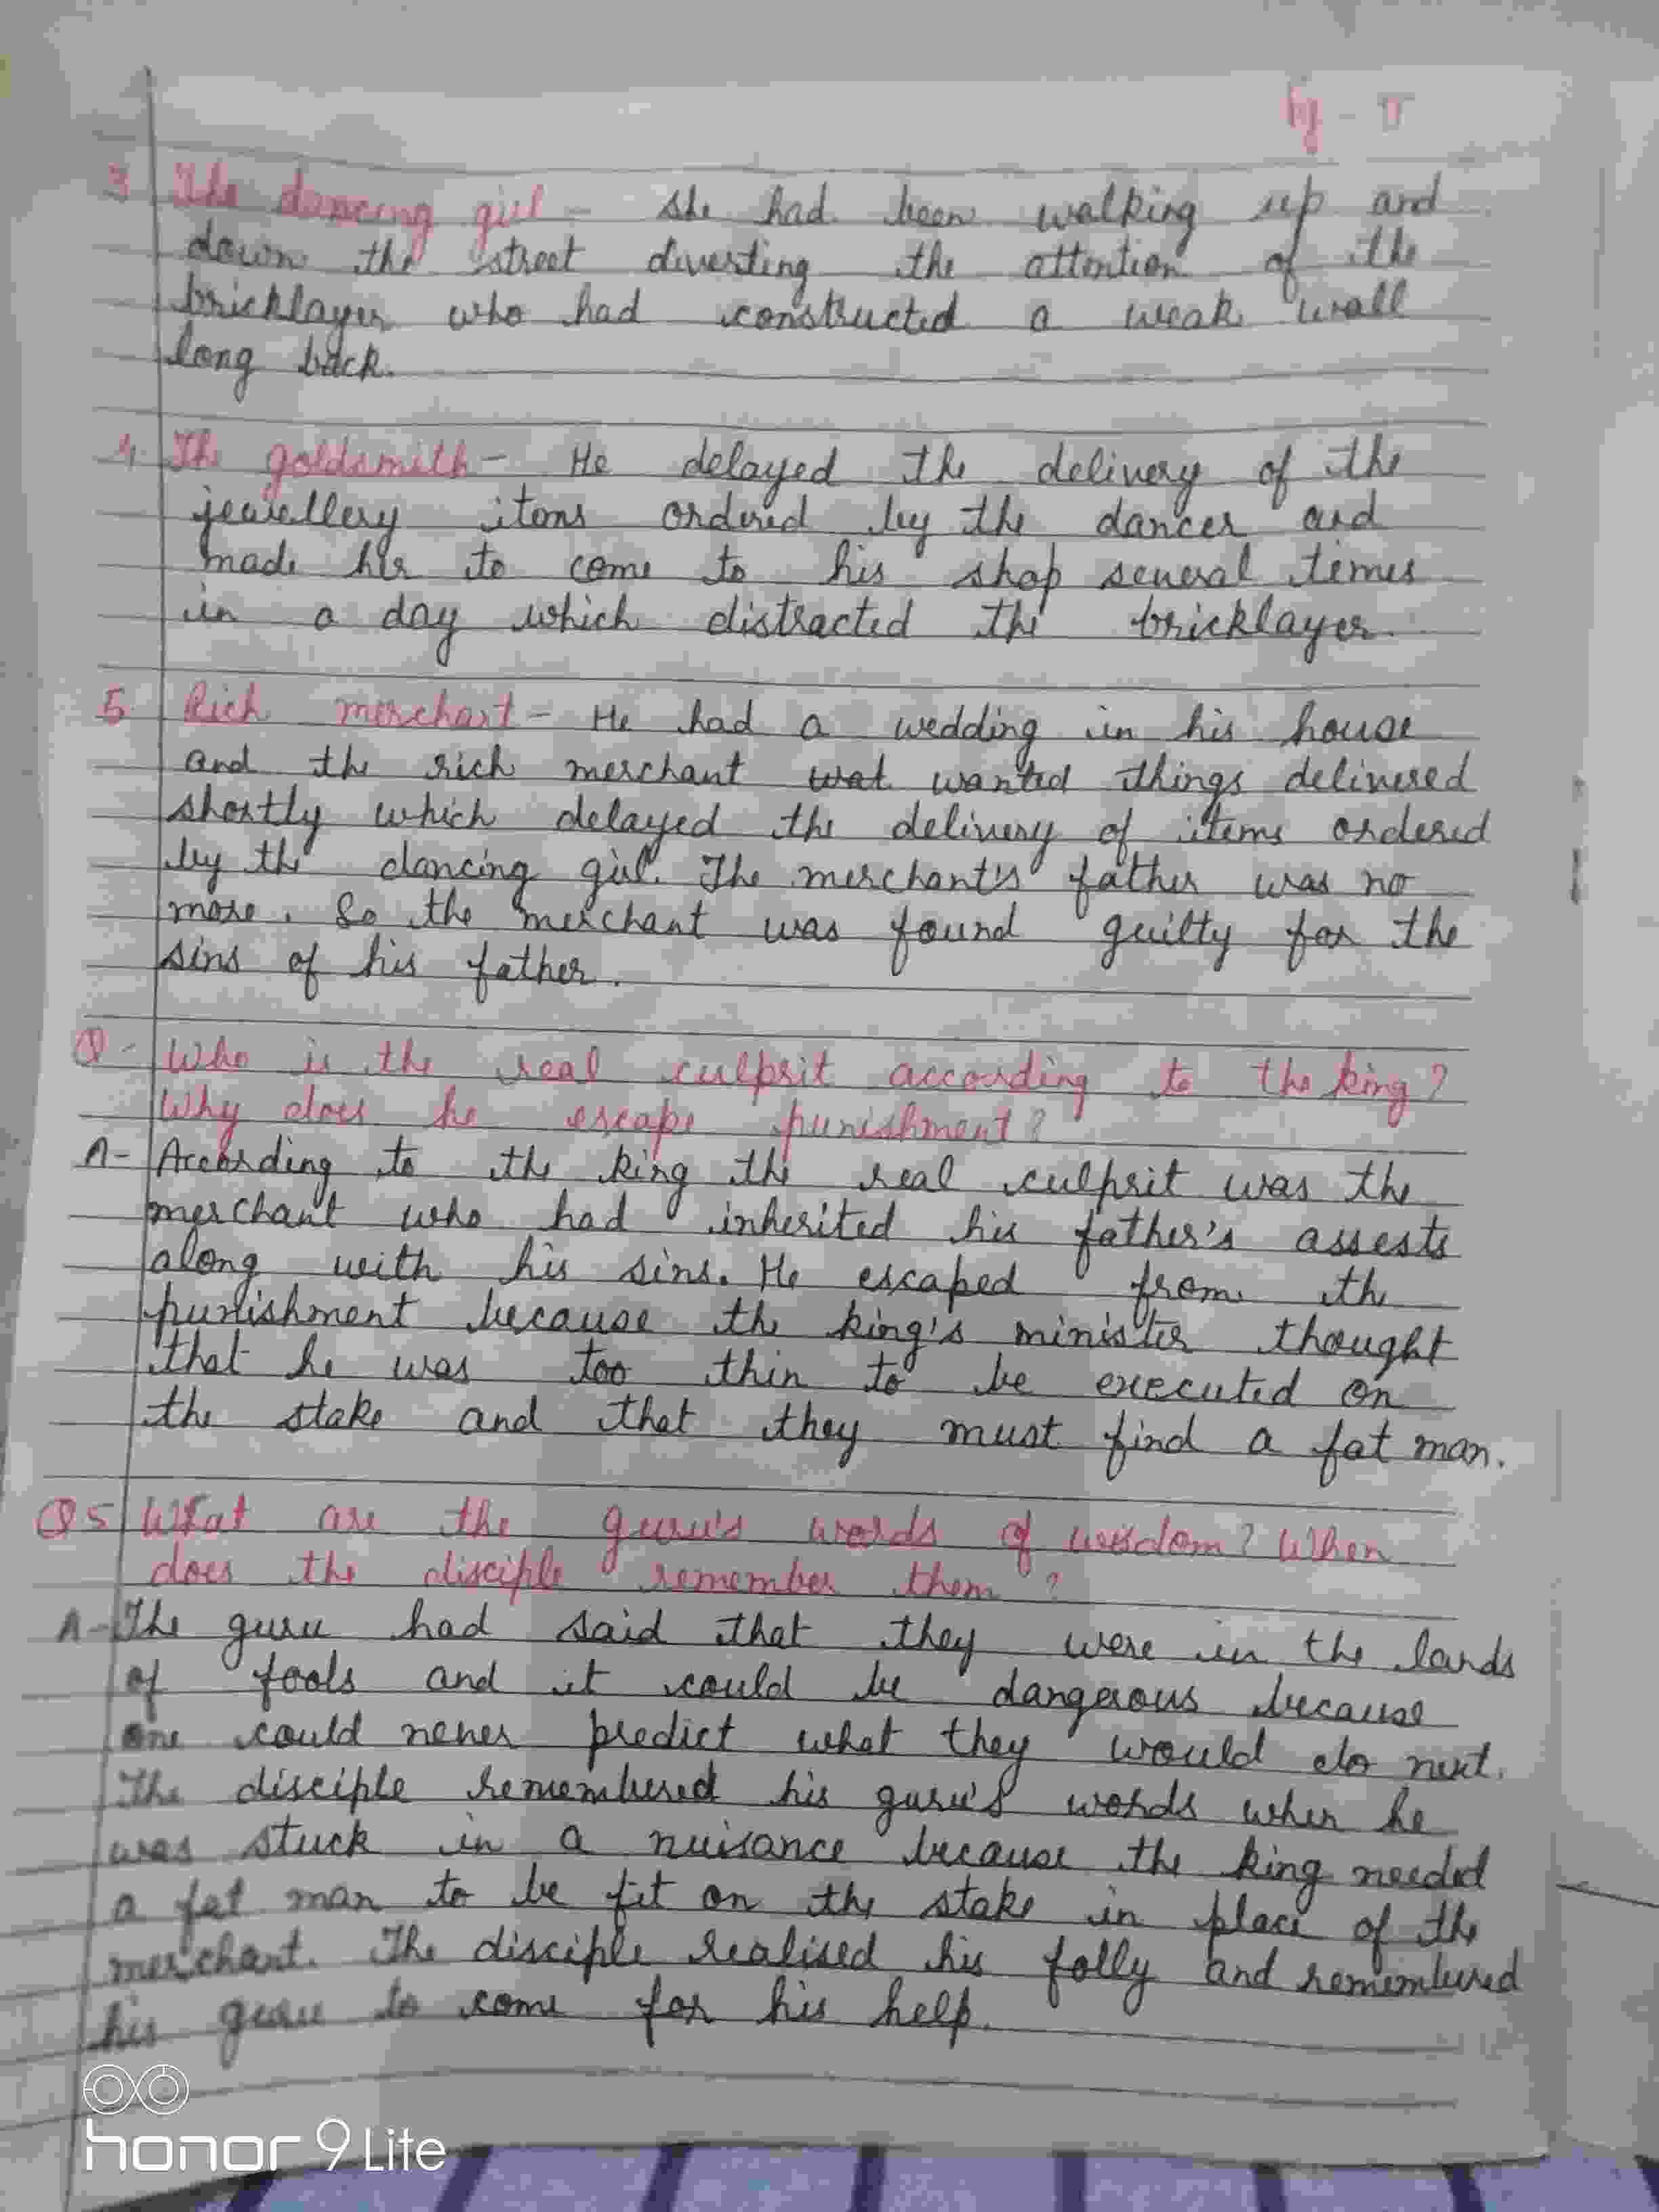 3 The dancing girl - she had been walking up and
down the street diverting the attention of the
bricklayer who had constructed a weak wall
long back.
4. The goldsmith - He delayed the delivery of the
jewellery items ordered by the dancer and
made her to come to his shop several times
in a day which distracted the bricklayer.
5 Rich merchant - He had a wedding in his house
and the rich merchant wat wanted things delivered
shortly which delayed the delivery of items ordered
by the dancing girl. The merchant's father was no
more. So the merchant was found guilty for the
sins of his father.
Q- Who is the real culprit according to the king?
Why does he escape punishment?
A- According to the king the real culprit was the
merchant who had inherited his father's assests
along with his sins. He escaped from the
punishment because the king's minister thought
that he was too thin to be executed on
the stake and that they must find a fat man.
Q5 What are the guru's words of wisdom? When
does the disciple remember them?
A- The guru had said that they were in the lands
of fools and it could be dangerous because
one could never predict what they would do next.
The disciple remembered his guru's words when he
was stuck in a nuisance because the king needed
a fat man to be fit on the stake in place of the
merchant. The disciple realised his folly and remembered
his guru to come for his help.
honor 9 Lite